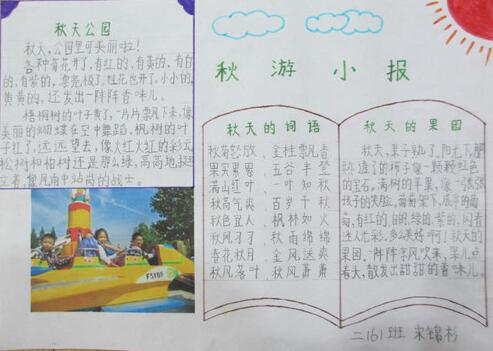 秋天公园
秋天,公园里可美丽啦!
各种菊花开了,有红的,有黄的,有白
的,有紫的,漂亮极了。桂花也开了,小小的,
黄黄的,还发出一阵阵香味儿。
梧桐树的叶子黄了,一片片飘下来,像
美丽的蝴蝶在空中舞蹈。枫树的叶
子红了,远远望去,像火红火红的彩云。
松树和柏树还是那么绿,高高地挺
立着,像风雨中站岗的战士。
秋游小报
秋天的词语
秋菊怒放、金桂飘香
果实累累、五谷丰登
满山红叶、一叶知秋
秋高气爽、百岁千秋
秋色宜人、枫林如火
秋风习习、秋雨绵绵
春花秋月、金风送爽
秋风落叶、秋风萧萧
秋天的果园
秋天,果子熟了,阳光下,那
熟透了的柿子像一颗颗红色
的宝石。满树的苹果,像一张张
孩子的笑脸。葡萄架下,成串的葡
萄,有红的、白的、绿的、紫的,闪着
迷人光彩,多么美妙啊!秋天的
果园,一阵阵凉风吹来,果儿点
着头,散发出甜甜的香味儿。
二(6)班 宋锦杉